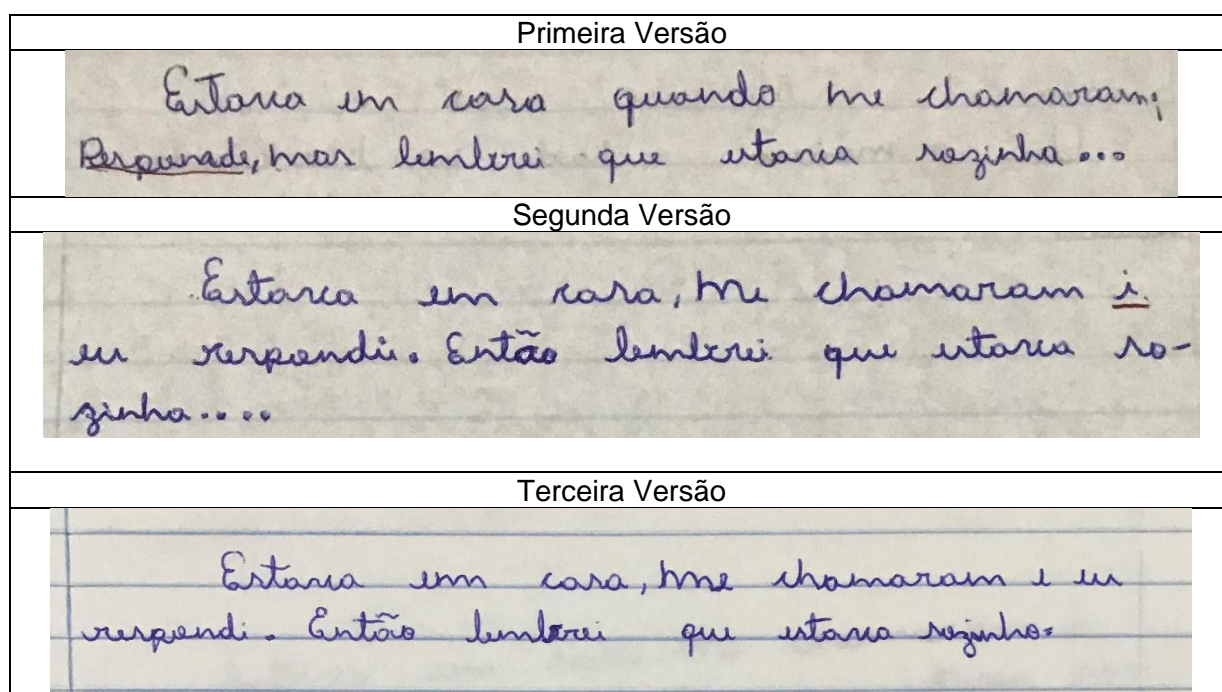 Primeira Versão
Estava em casa quando me chamaram;
mas lembrei que estava sozinha...
Segunda Versão
Estava em casa, me chamaram i
eu respondi. Então lembrei que estava so-
zinha....
Terceira Versão
Estava em casa, me chamaram e eu
respondi. Então lembrei que estava sozinha.